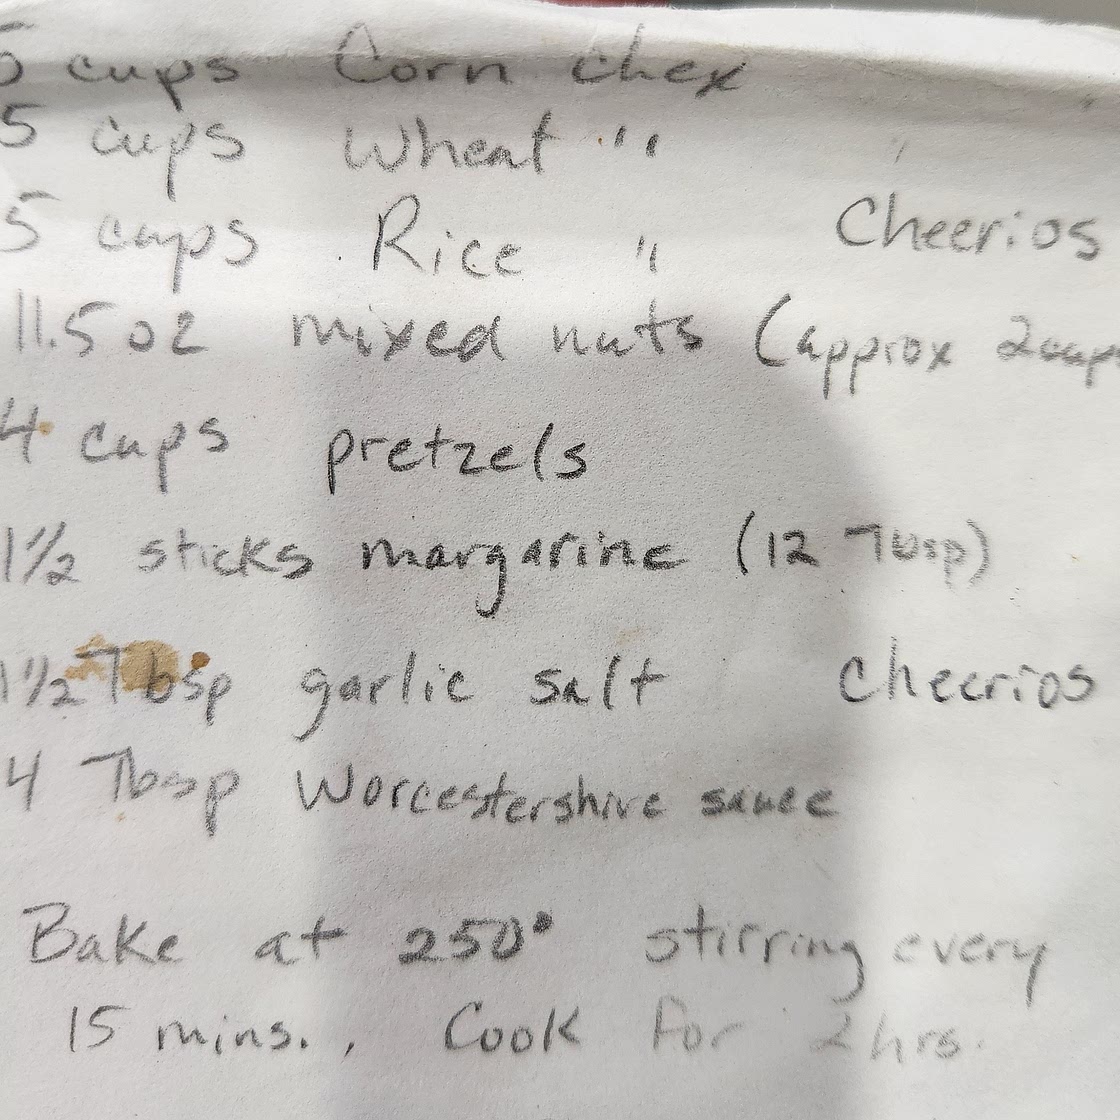 5 cups Corn chex
5 cups Wheat "
5 cups Rice " Cheerios
11.5 oz mixed nuts (approx 2cups
4 cups pretzels
1½ sticks margarine (12 Tbsp)
1½ Tbsp garlic salt Cheerios
4 Tbsp Worcestershire sauce
Bake at 250° stirring every
15 mins., Cook for 2 hrs.